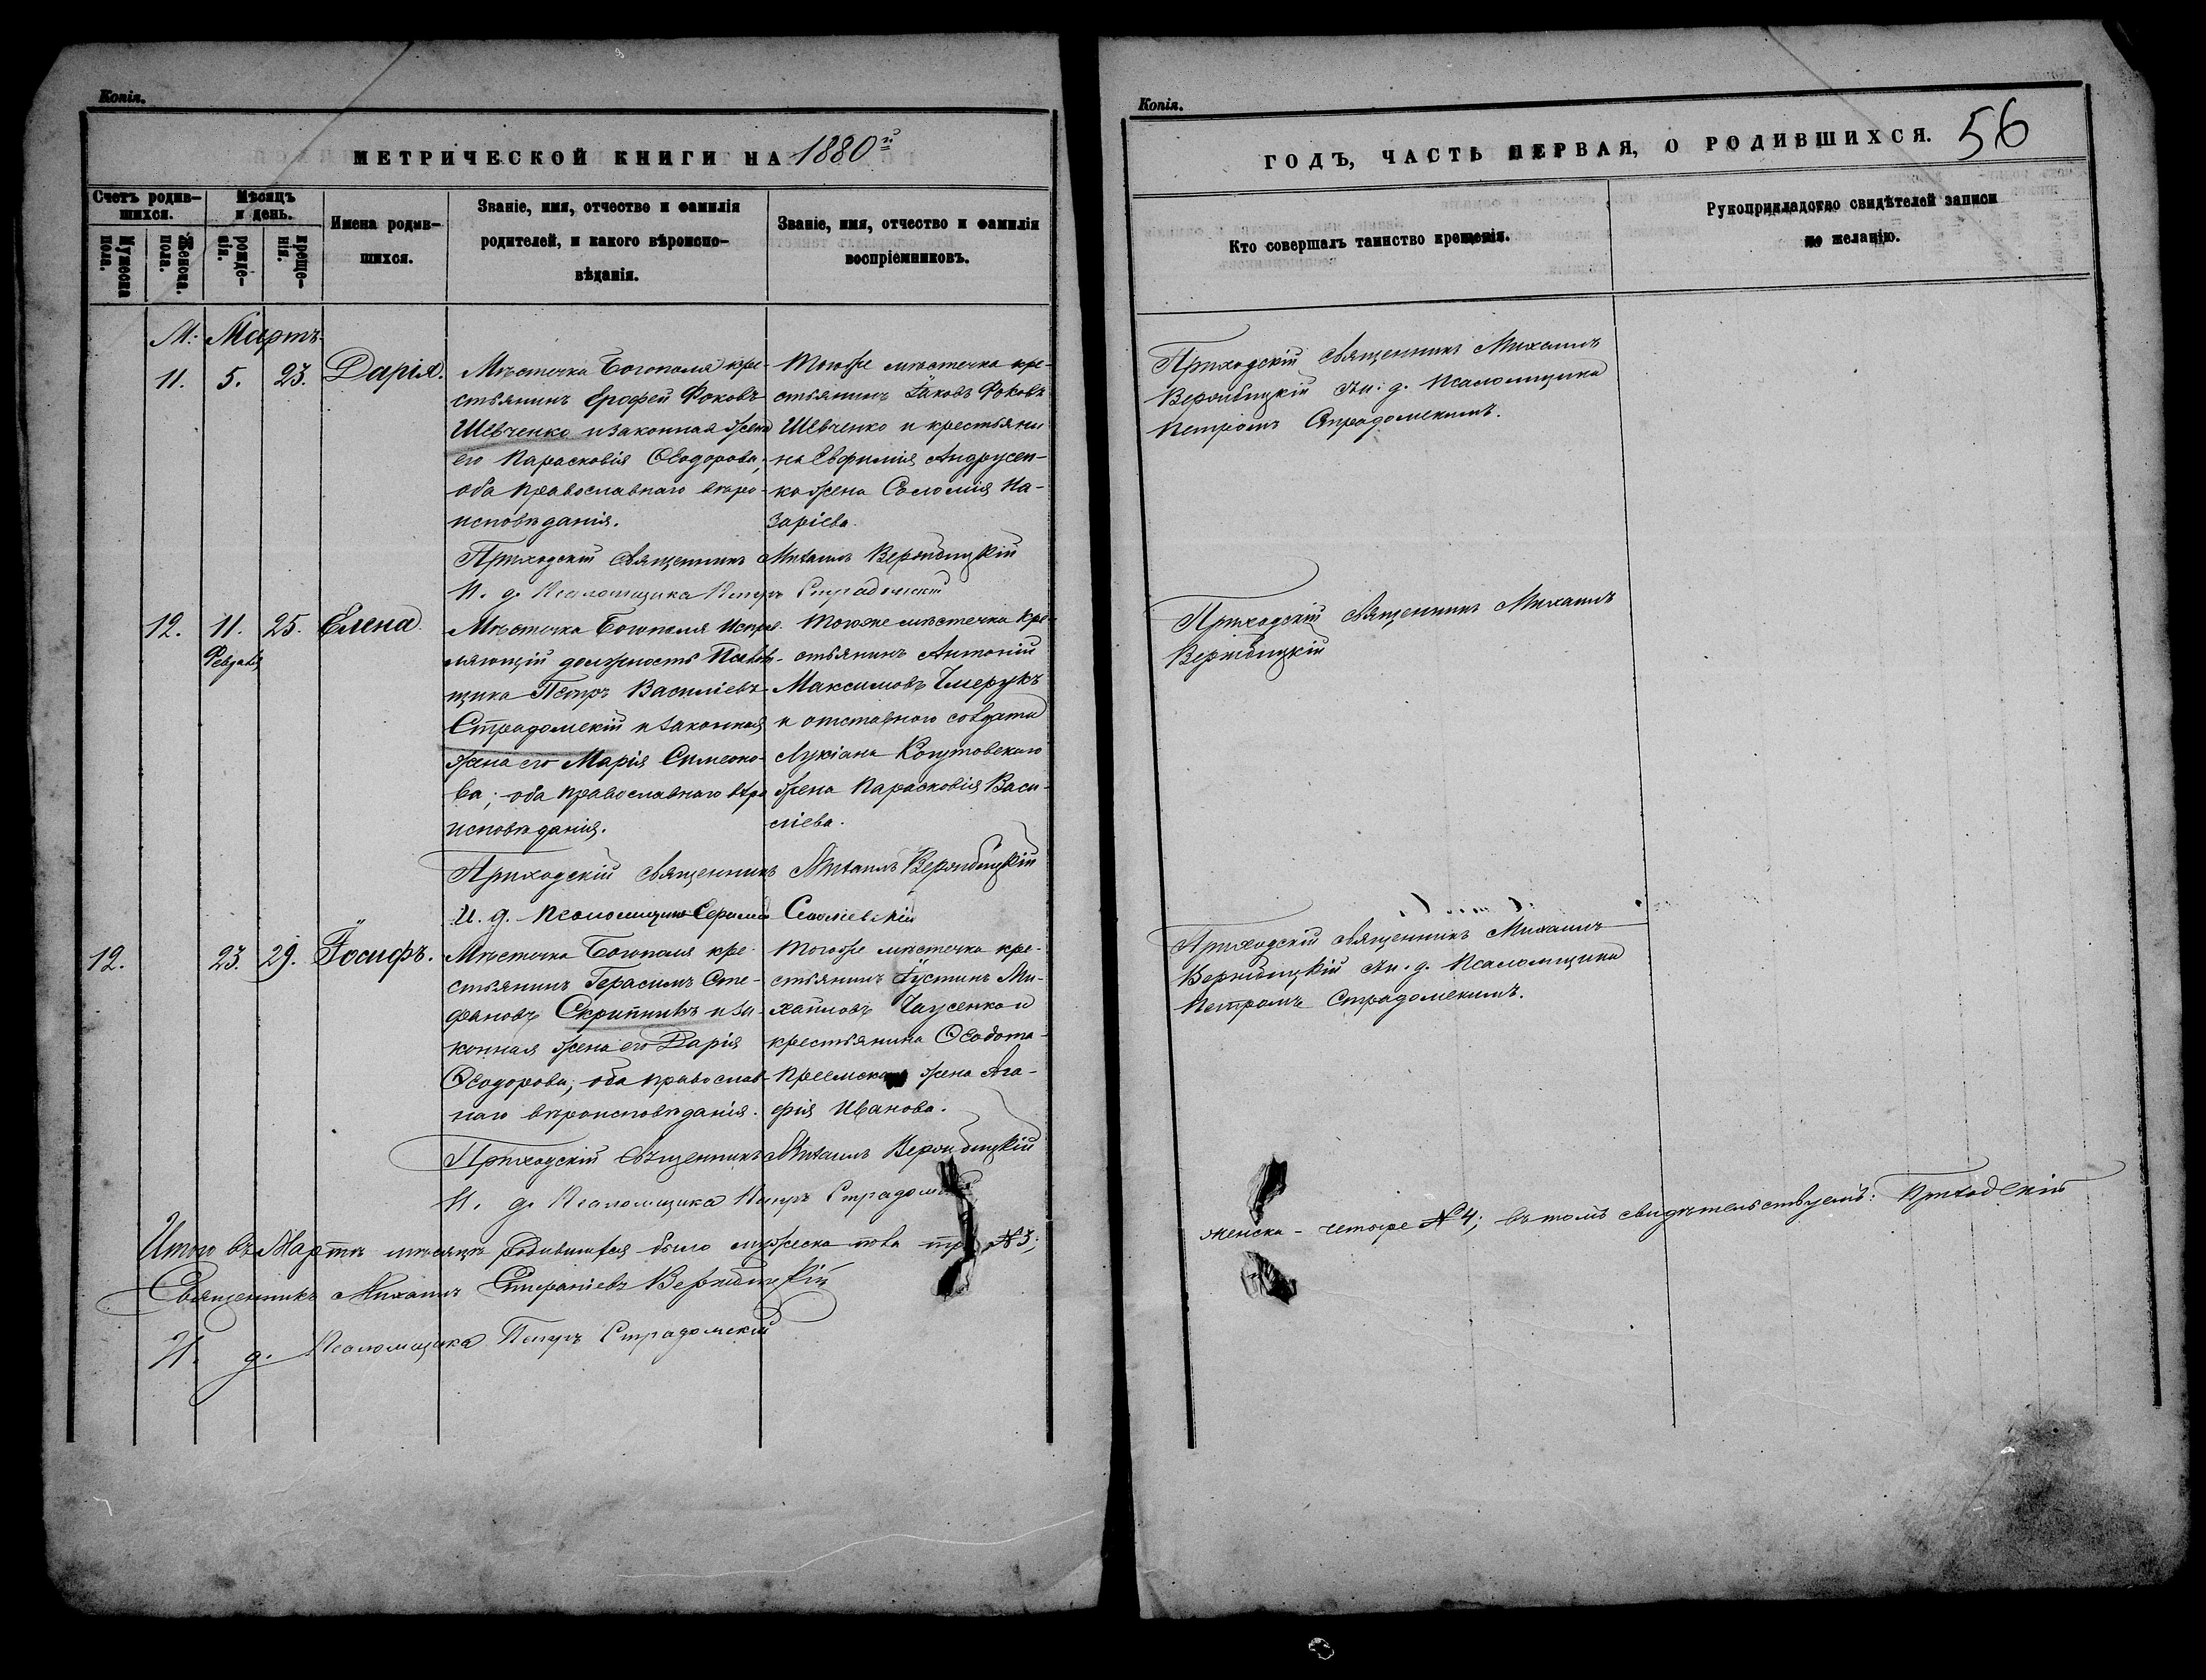 Копія.
МЕТРИЧЕСКОЙ КНИГИ НА 1880й
Счетъ родив-
шихся.
Мужеска
пола.
Женска.
пола.
Мѣсяцъ
и день.
рожде-
нія.
креще-
нія.
Имена родив-
шихся.
Званіе, имя, отчество и фамилія
родителей, и какого вѣроиспо-
вѣданія.
Званіе, имя, отчество и фамилія
воспріемниковъ.
М: Мартъ
11. 5. 23. Дарія.
Мѣстечка Богополя кре-
стьянинъ Ерофей Фоковъ
Шевченко и законная жена
его Парасковія Ѳеодорова;
оба православнаго вѣро-
исповѣданія.
Тогоже мѣстечка кре-
стьянинъ Іаковъ Фоковъ
Шевченко и крестьяни
на Евфимія Андрусен-
ко жена Саломія На-
заріева.
Приходскій Священникъ Михаилъ Вержбицкій
И. д. Псаломщика Петръ Страдомскій
12. 11. 25. Елена.
Февраля
Мѣстечка Богополя Исправ-
ляющій должность Псалом-
щика Петръ Василіевъ
Страдомскій и законная
жена его Марія Симеоно-
ва; оба православнаго вѣро
исповѣданія.
Тогоже мѣстечка кре-
стьянинъ Антоній
Максимовъ
и отставного солдата
Лукіана
жена Парасковія Васи-
ліева.
Приходскій Священникъ Михаилъ Вержбицкій
И. д. Псаломщика
12. 23. 29. Іосифъ.
Мѣстечка Богополя кре-
стьянинъ Герасимъ Сте-
фановъ Скрипникъ и за-
конная жена его Дарія
Ѳеодорова; оба православ-
наго вѣроисповѣданія.
Тогоже мѣстечка кре-
стьянинъ Іустинъ Ми-
хайловъ Чаусенко и
крестьянина Ѳеодота
жена Ага-
фія Иванова.
Приходскій Священникъ Михаилъ Вержбицкій
И. д. Псаломщика Петръ Страдомскій
Итого въ Мартѣ мѣсяцѣ родившихся было мужеска пола три №3;
Священникъ Михаилъ Вержбицкій
И. д. Псаломщика Петръ Страдомскій
Копія.
ГОДЪ, ЧАСТЬ ПЕРВАЯ, О РОДИВШИХСЯ. 56
Кто совершалъ таинство крещенія.
Рукоприкладство свидѣтелей записи
по желанію.
Приходскій Священникъ Михаилъ
Вержбицкій съ и. д. Псаломщика
Петромъ Страдомскимъ.
Приходскій Священникъ Михаилъ
Вержбицкій
Приходскій Священникъ Михаилъ
Вержбицкій съ и. д. Псаломщика
Петромъ Страдомскимъ.
женска - четыре №4; въ томъ свидѣтельствуемъ: Приходскій